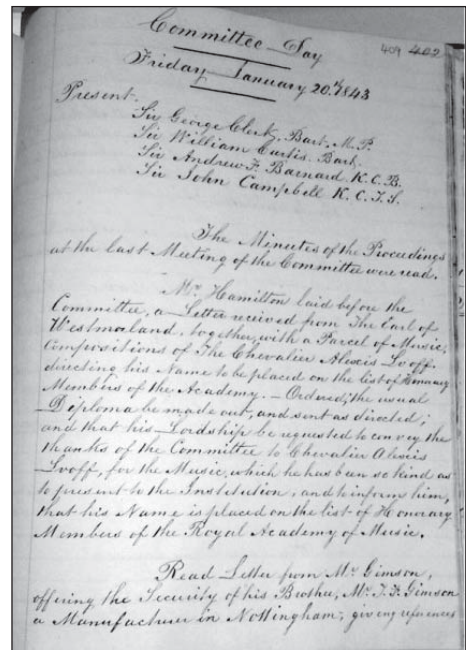 409 402
Committee Day
Friday January 20th 1843
Present.
Sir George Clerk, Bart. M.P.
Sir William Curtis. Bart.
Sir Andrew F. Barnard K.C.B.
Sir John Campbell K.C.T.S.
The Minutes of the Proceedings
at the last Meeting of the Committee were read.
Mr. Hamilton laid before the
Committee, a Letter received from The Earl of
Westmorland, together with a Parcel of Music,
Compositions of The Chevalier Alexis Lvoff.
directing his Name to be placed on the list of Honorary
Members of the Academy. – Ordered, the usual
Diploma be made out, and sent as directed;
and that his Lordship be requested to convey the
thanks of the Committee to Chevalier Alexis
Lvoff, for the Music, which he has been so kind as
to present to the Institution, and to inform him,
that his Name is placed on the list of Honorary
Members of the Royal Academy of Music.
Read Letter from Mr. Gimson,
offering the Security of his Brother, Mr. J. F. Gimson
a Manufacturer in Nottingham, giving references